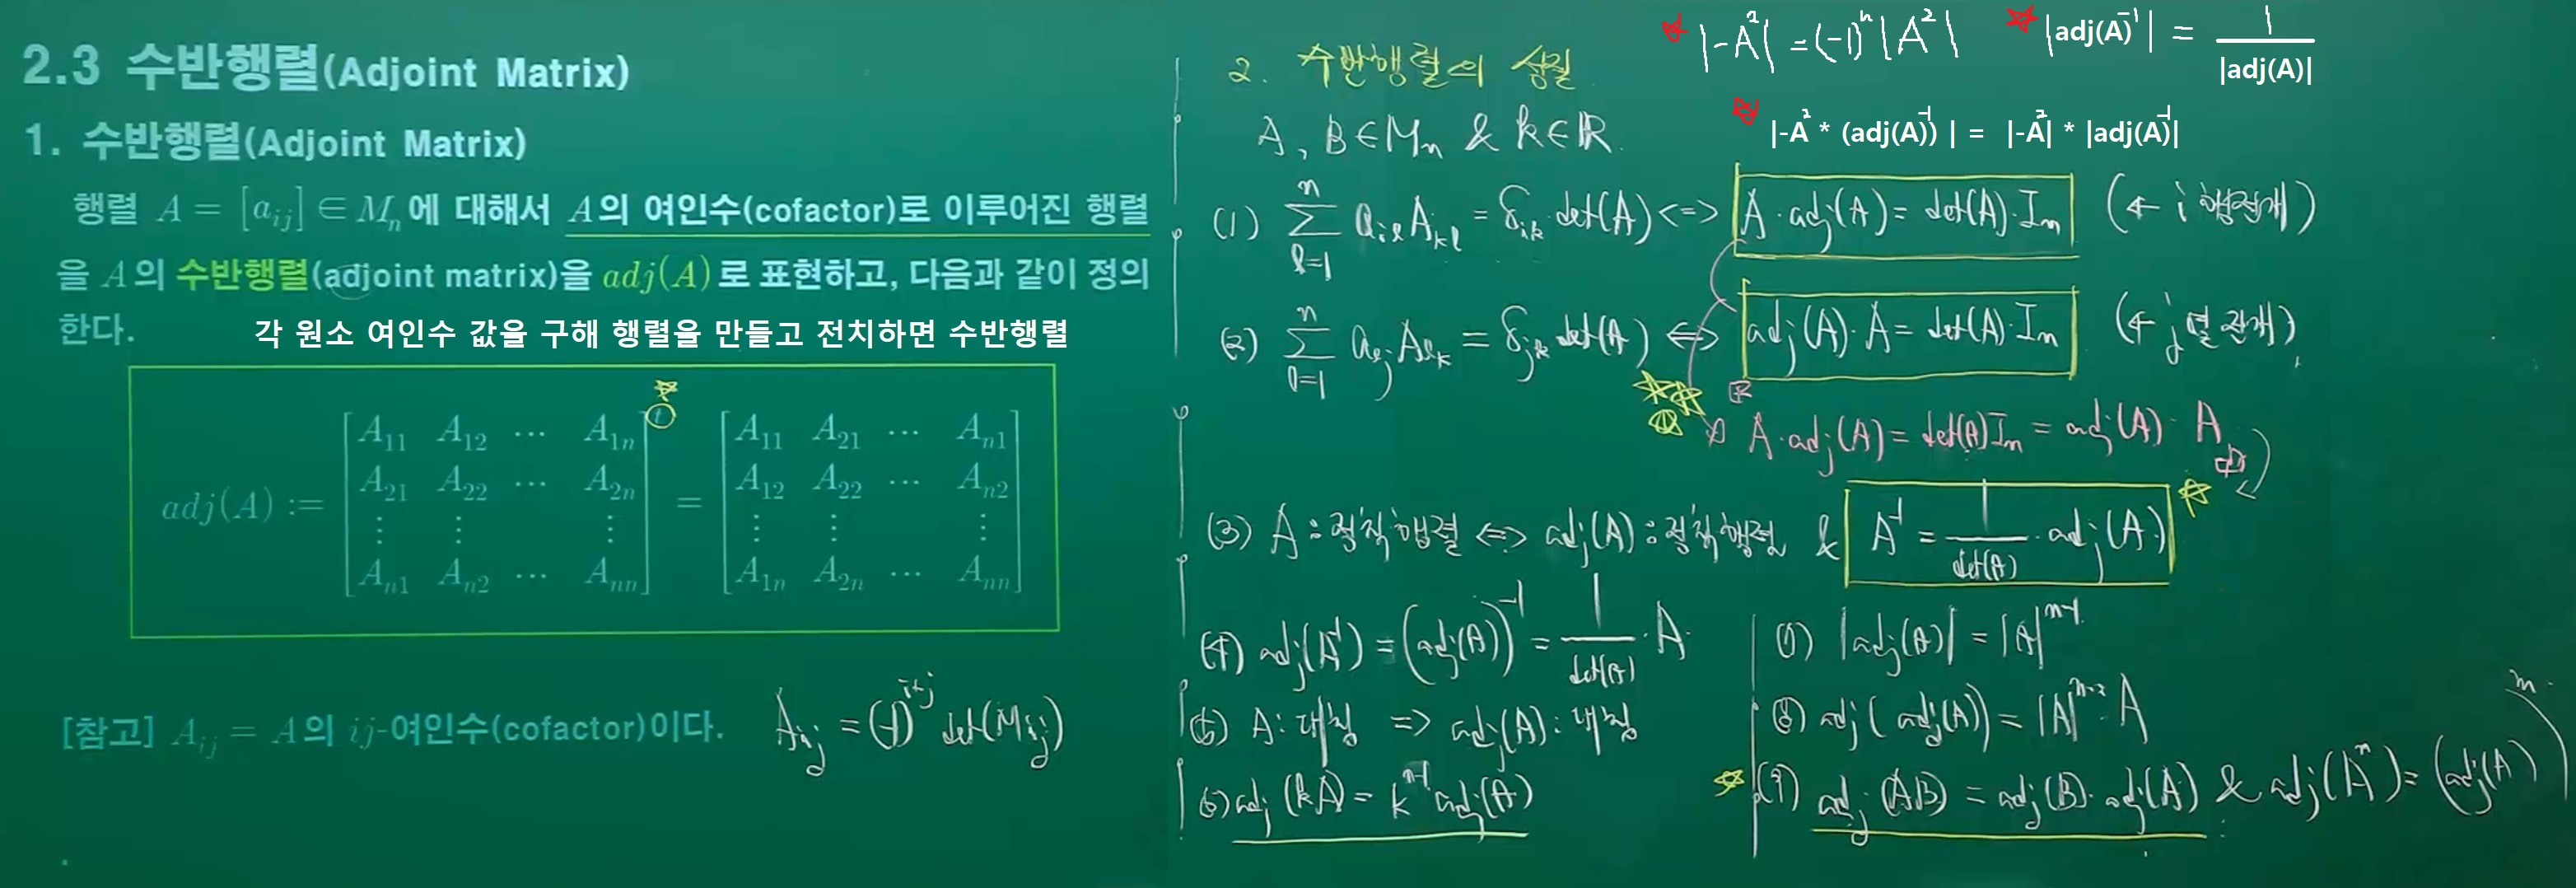 2.3 수반행렬(Adjoint Matrix)
1. 수반행렬(Adjoint Matrix)
행렬 A = [a_{ij}] ∈ M_n에 대해서 A의 여인수(cofactor)로 이루어진 행렬
을 A의 수반행렬(adjoint matrix)을 adj(A)로 표현하고, 다음과 같이 정의
한다.
각 원소 여인수 값을 구해 행렬을 만들고 전치하면 수반행렬
adj(A) := [A_{11} A_{12} ⋯ A_{1n}; A_{21} A_{22} ⋯ A_{2n}; ⋮ ⋮ ⋮; A_{n1} A_{n2} ⋯ A_{nn}]^t = [A_{11} A_{21} ⋯ A_{n1}; A_{12} A_{22} ⋯ A_{n2}; ⋮ ⋮ ⋮; A_{1n} A_{2n} ⋯ A_{nn}]
[참고] A_{ij} = A의 ij-여인수(cofactor)이다. A_{ij} = (-1)^{i+j} det(M_{ij})
☆ |-A^2| = (-1)^n |A^2| ☆ |adj(A)^{-1}| = 1/|adj(A)|
☆ |-A^2 * (adj(A))^{-1}| = |-A^2| * |adj(A)^{-1}|
2. 수반행렬의 성질
A, B ∈ M_n & k ∈ ℝ.
(1) Σ_{l=1}^{n} a_{il} A_{kl} = δ_{ik} det(A) <=> A·adj(A) = det(A)·I_n (← i 행전개)
(2) Σ_{l=1}^{n} a_{lj} A_{lk} = δ_{jk} det(A) <=> adj(A)·A = det(A)·I_n (← j 열전개)
A·adj(A) = det(A) I_n = adj(A)·A
(3) A : 정칙행렬 <=> adj(A) : 정칙행렬 & A^{-1} = 1/det(A) · adj(A)
(4) adj(A^{-1}) = (adj(A))^{-1} = 1/det(A) · A.
(5) A : 대칭 => adj(A) : 대칭
(6) adj(kA) = k^{n-1} adj(A)
(7) |adj(A)| = |A|^{n-1}
(8) adj(adj(A)) = |A|^{n-2} · A
☆ (9) adj(AB) = adj(B)·adj(A) & adj(A^m) = (adj(A))^m